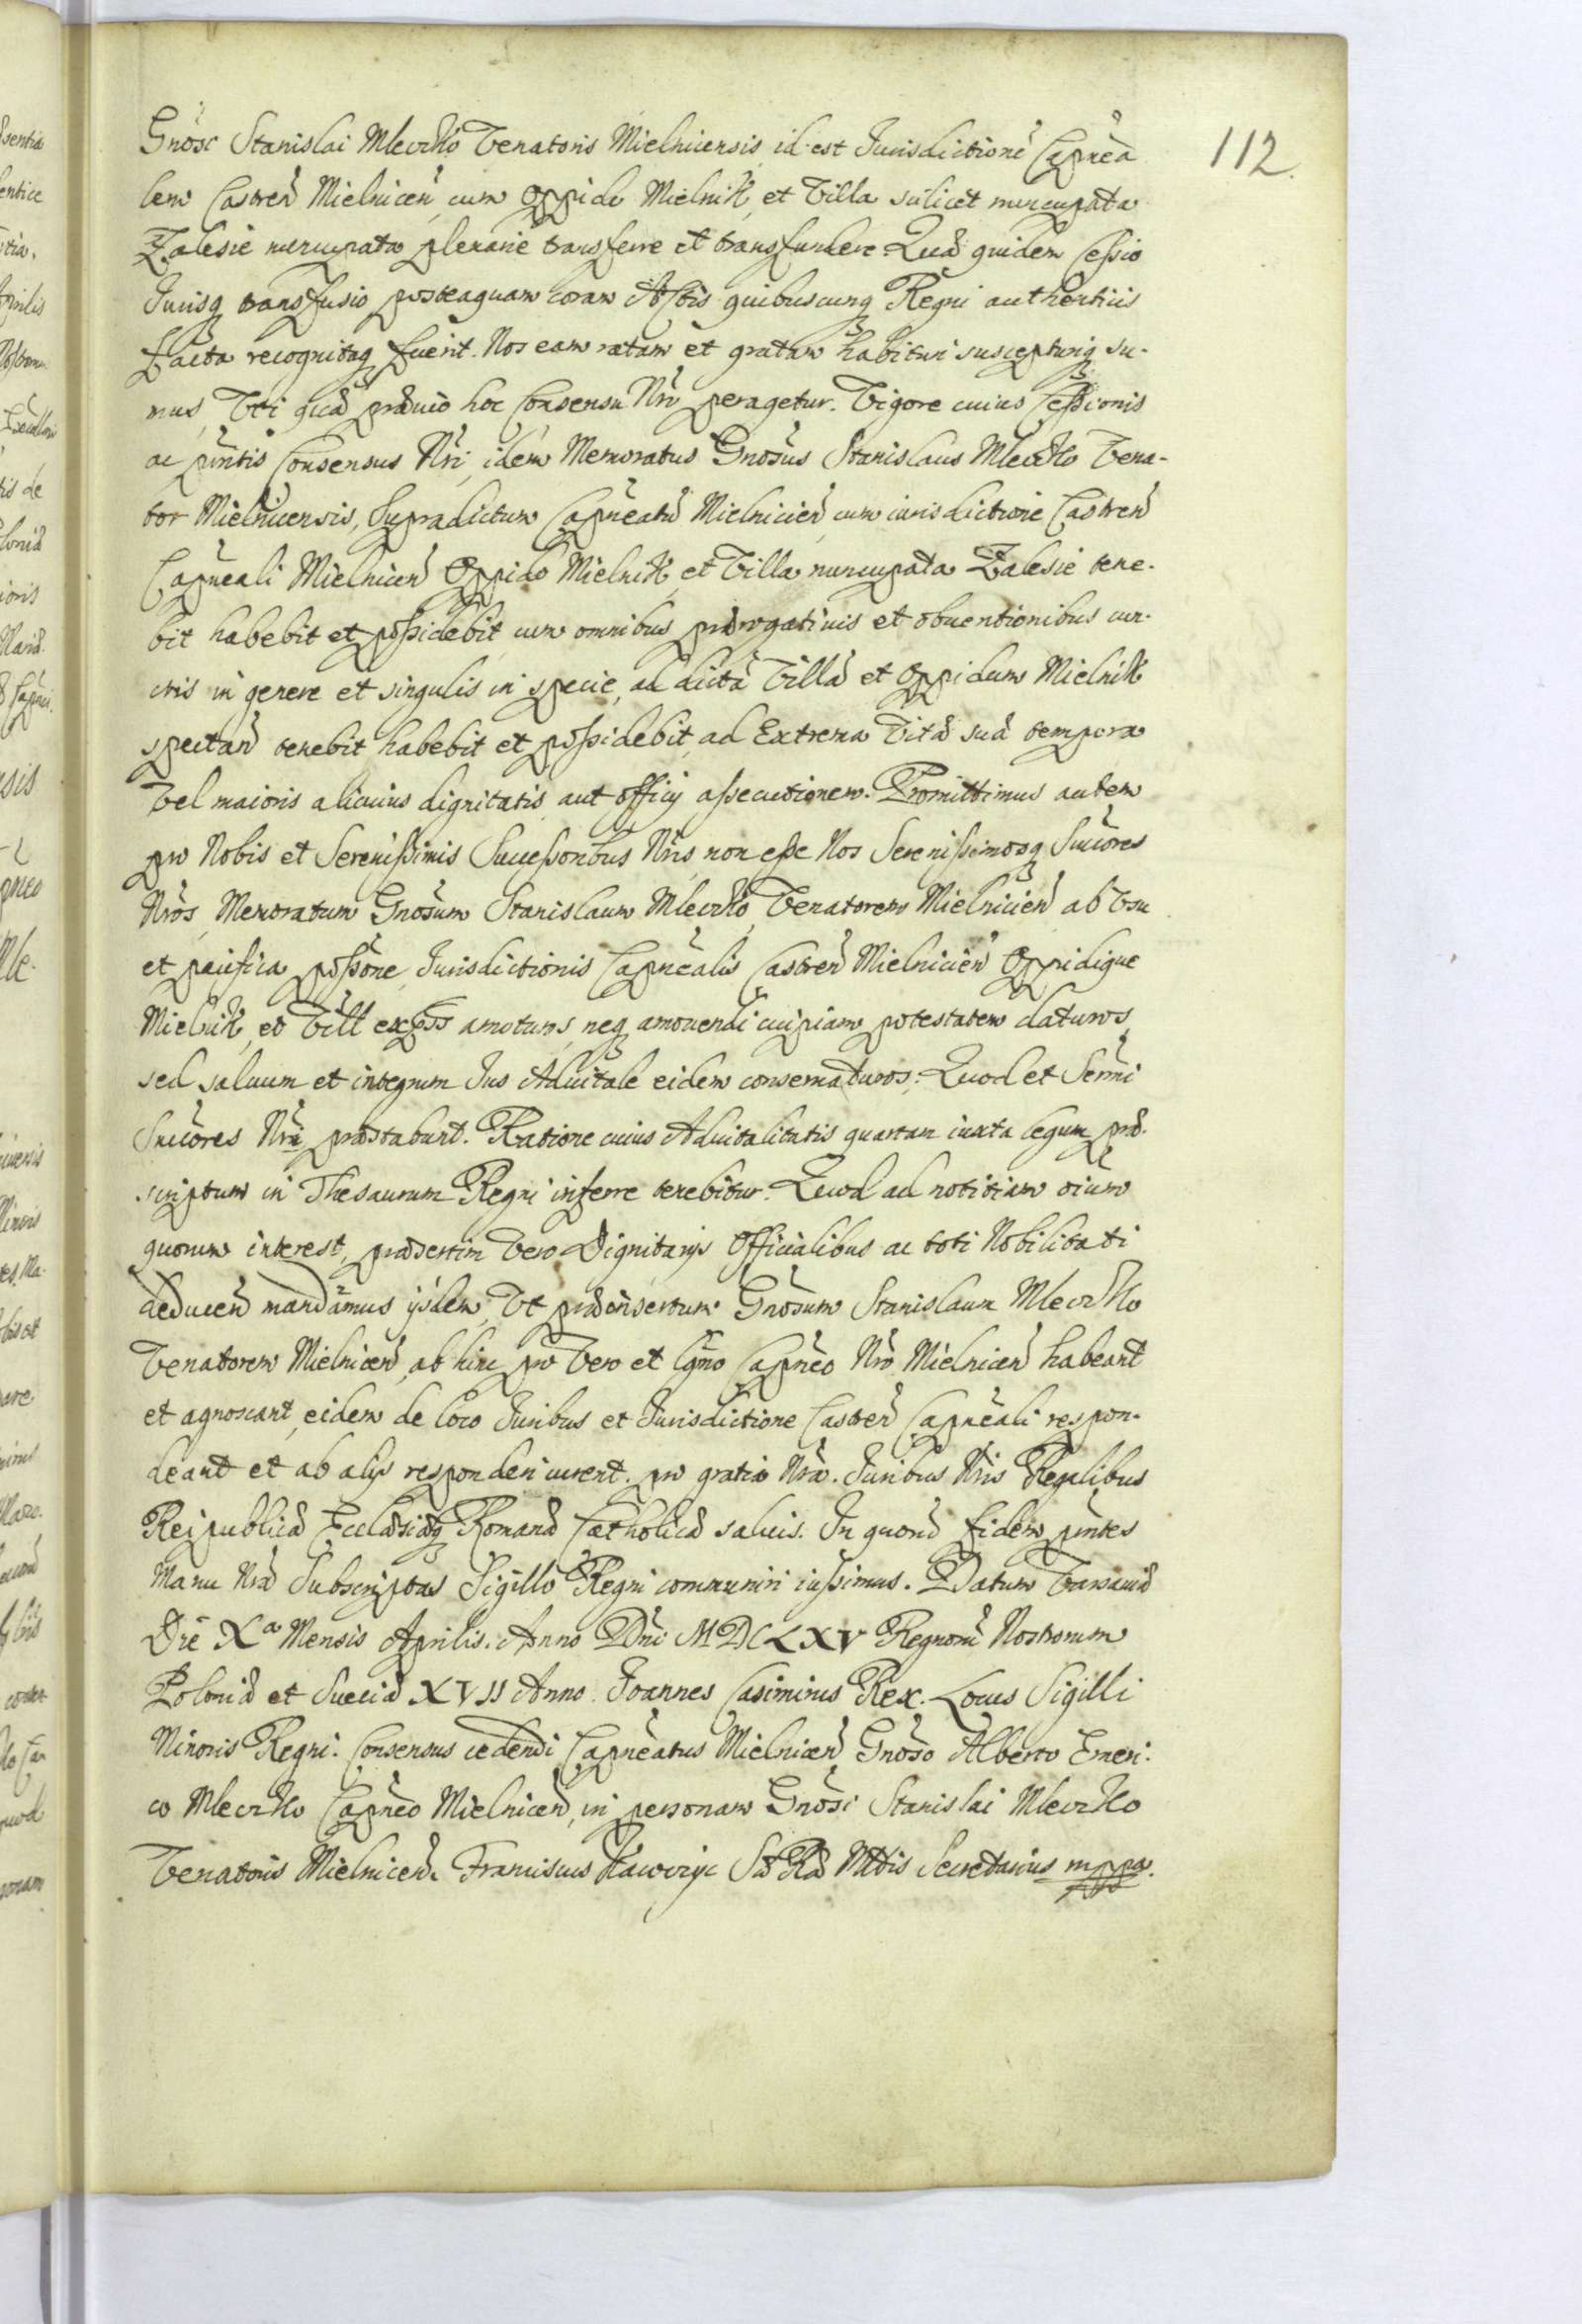 112.
Gnosi Stanislai Mleczko Venatoris Mielnicensis, id est Jurisdictione Capnea
lem Castren Mielnicen, cum Oppido Mielnik, et Villa scilicet nuncupata
Zalesie nuncupata plenarie transferre et transfundere. Quæ quidem Cessio
Jurisq transfusio posteaquam coram Actis quibuscunq Regni authenticis
facta recognitaq fuerit. Nos eam ratam et gratam habituri suscepturiq su-
mus, Vti qua prævio hoc Consensu Nro peragetur. Vigore cuius Cessionis
ac pntis Consensus Nri, idem Memoratus Gnosus Stanislaus Mleczko Vena-
tor Mielnicensis, Supradictum Capneatu Mielnicien cum iurisdictione Castren
Capneali Mielnicen Oppido Mielnik, et Villa nuncupata Zalesie tene-
bit habebit et possidebit, cum omnibus prærogatiuis et obuentionibus cun-
ctis in genere et singulis in specie, ad dicta Villa et Oppidum Mielnik
spectan tenebit habebit et possidebit, ad Extrema Vitæ suæ tempora
Vel maioris alicuius dignitatis, aut officij assecutionem. Promittimus autem
pro Nobis et Serenissimis Successoribus Nris non esse Nos Serenissimosq Succores
Nros, Memoratum Gnosum Stanislaum Mleczko, Venatorem Mielnicien ab Vsu
et pacifica possone Jurisdictionis Capnealis Castren Mielnicien Oppidique
Mielnik, et Vill expss amoturos, neq amouendi cuipiam potestatem daturos,
sed saluum et integrum Jus Aduitale eidem conseruaturos. Quod et Sermi
Succores Nri præstabunt. Ratione cuius Aduitalitatis quartam iuxta legum præ-
scriptum in Thesaurum Regni inferre tenebitur. Quod ad notitiam oium
quorum interest, præsertim Vero Dignitarijs Officialibus ac toti Nobilitati
deducen mandamus ijsdem, Vt præinsertum Gnosum Stanislaum Mleczko
Venatorem Mielnicen, ab hinc pro Vero et lgmo Capneo Nro Mielnicen habeant
et agnoscant, eidem de loco Juribus et Jurisdictione Castren Capneali respon-
deant et ab alijs responderi curent. pro gratia Nra. Juribus Nris Regalibus
Reipublicæ Ecclæsiæq Romanæ Catholicæ saluis. In quoru fidem pntes
Manu Nra Subscriptas Sigillo Regni communiri iussimus. Datum Varsauiæ
Die Xa Mensis Aprilis. Anno Dni MDCLXV Regnoru Nostrorum
Poloniæ et Sueciæ XVII Anno. Joannes Casimirus Rex. Locus Sigilli
Minoris Regni. Consensus cedendi Capneatus Mielnicen Gnoso Alberto Emeri-
co Mleczko Capneo Mielnicen, in personam Gnosi Stanislai Mleczko
Venatoris Mielnicen. Franciscus Sæ Ræ Mttis Secretarius mppa.